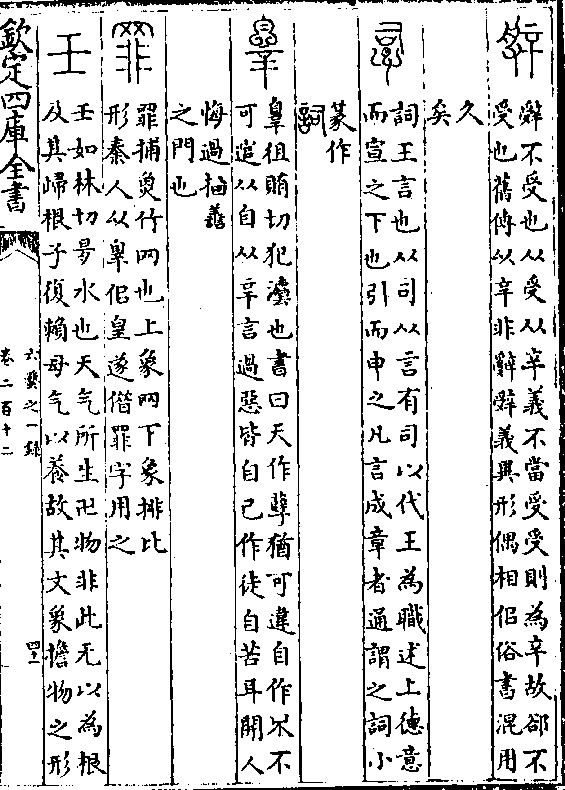 辤不受也从受从辛義不當受受則為辛故卻不
受也舊傳以辛非辭辤義異形偶相佀俗書混用
久
矣
詞王言也从司从言有司以代王為職述上德意
而宣之下也引而申之凡言成章者通謂之詞小
篆作
辠徂賄切犯灋也書曰天作孽猶可違自作不
可逭从自从辛言過惡皆自己作徒自苦耳開人
悔過抽譱
之門也
罪捕魚竹网也上象网下象排比
形秦人从辠佀皇遂借罪字用之
壬如林切昜水也天气所生卍物非此无以為根
及其歸根子復賴母气以養故其文象擔物之形
欽定四庫全書
六藝之一錄
卷二百十二